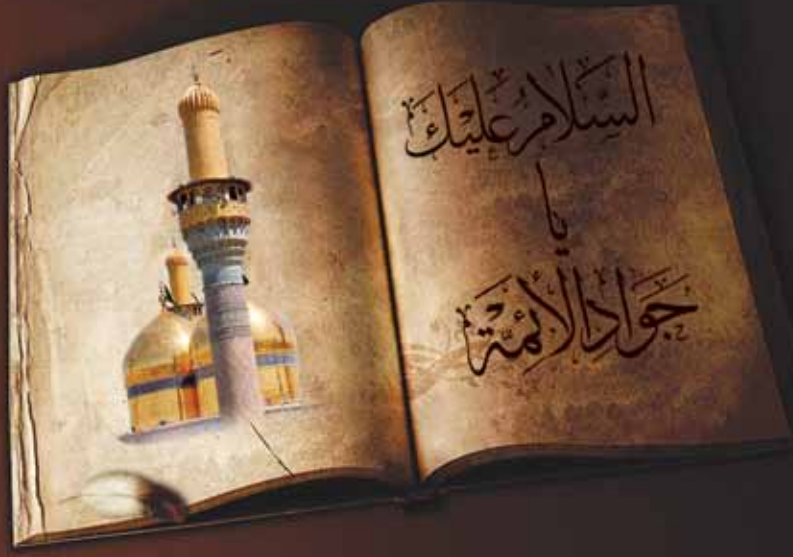 السَّلامُ عَلَيْكَ
يا
جَوادِ الأَئِمَّة